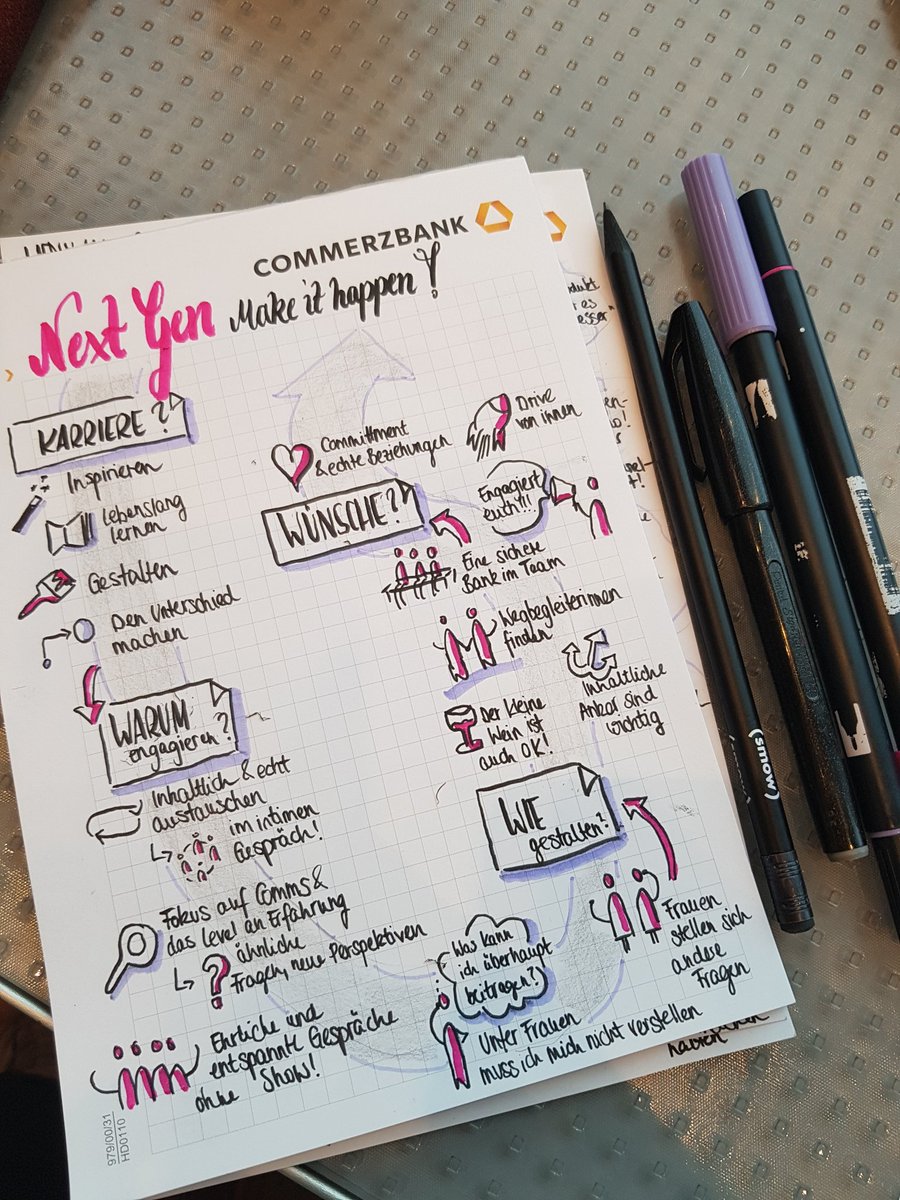 COMMERZBANK
Next Gen Make it happen!
KARRIERE?
Inspirieren
Lebenslang
lernen
Gestalten
Den Unterschied
machen
WARUM
engagieren?
Inhaltlich & echt
austauschen
im intimen
Gespräch!
Fokus auf Comms &
das Level an Erfahrung
ähnliche
Fragen, neue Perspektiven
Ehrliche und
entspannte Gespräche
ohne Show!
Was kann
ich überhaupt
beitragen?
Unter Frauen
muss ich mich nicht verstellen
Frauen
stellen sich
andere
Fragen
WIE
gestalten?
Der kleine
Wein ist
auch OK!
Inhaltliche
Anker sind
wichtig
Wegbegleiterinnen
finden
Eine sichere
Bank im Team
Engagiert
euch!!!
WÜNSCHE?
Committment
& echte Beziehungen
Drive
von innen
979/00/31
HD0110
(smow)